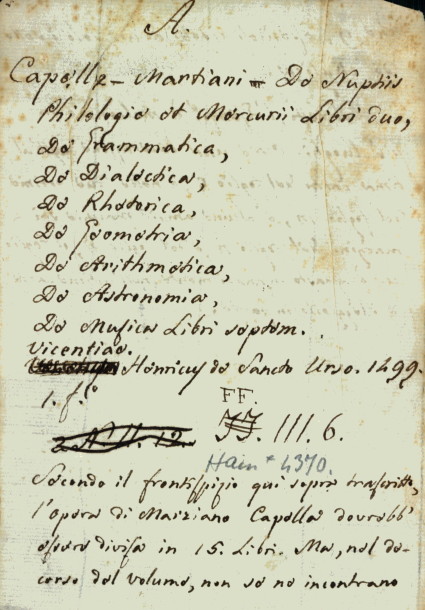 A.
Capellæ - Martiani - De Nuptiis
Philologie et Mercurii Libri duo,
De Grammatica,
De Dialectica,
De Rhetorica,
De Geometria,
De Arithmetica,
De Astronomia,
De Musica Libri septem.
Vicentiae.
Henricus de Sancto Urso. 1499.
1. f.º
FF.
III. 6.
Hain * 4370.
Secondo il frontispizio qui sopra trascritto,
l'opera di Marziano Capella dovrebb'
essere divisa in 15. Libri. Ma, nel de-
corso del volume, non se ne incontrano